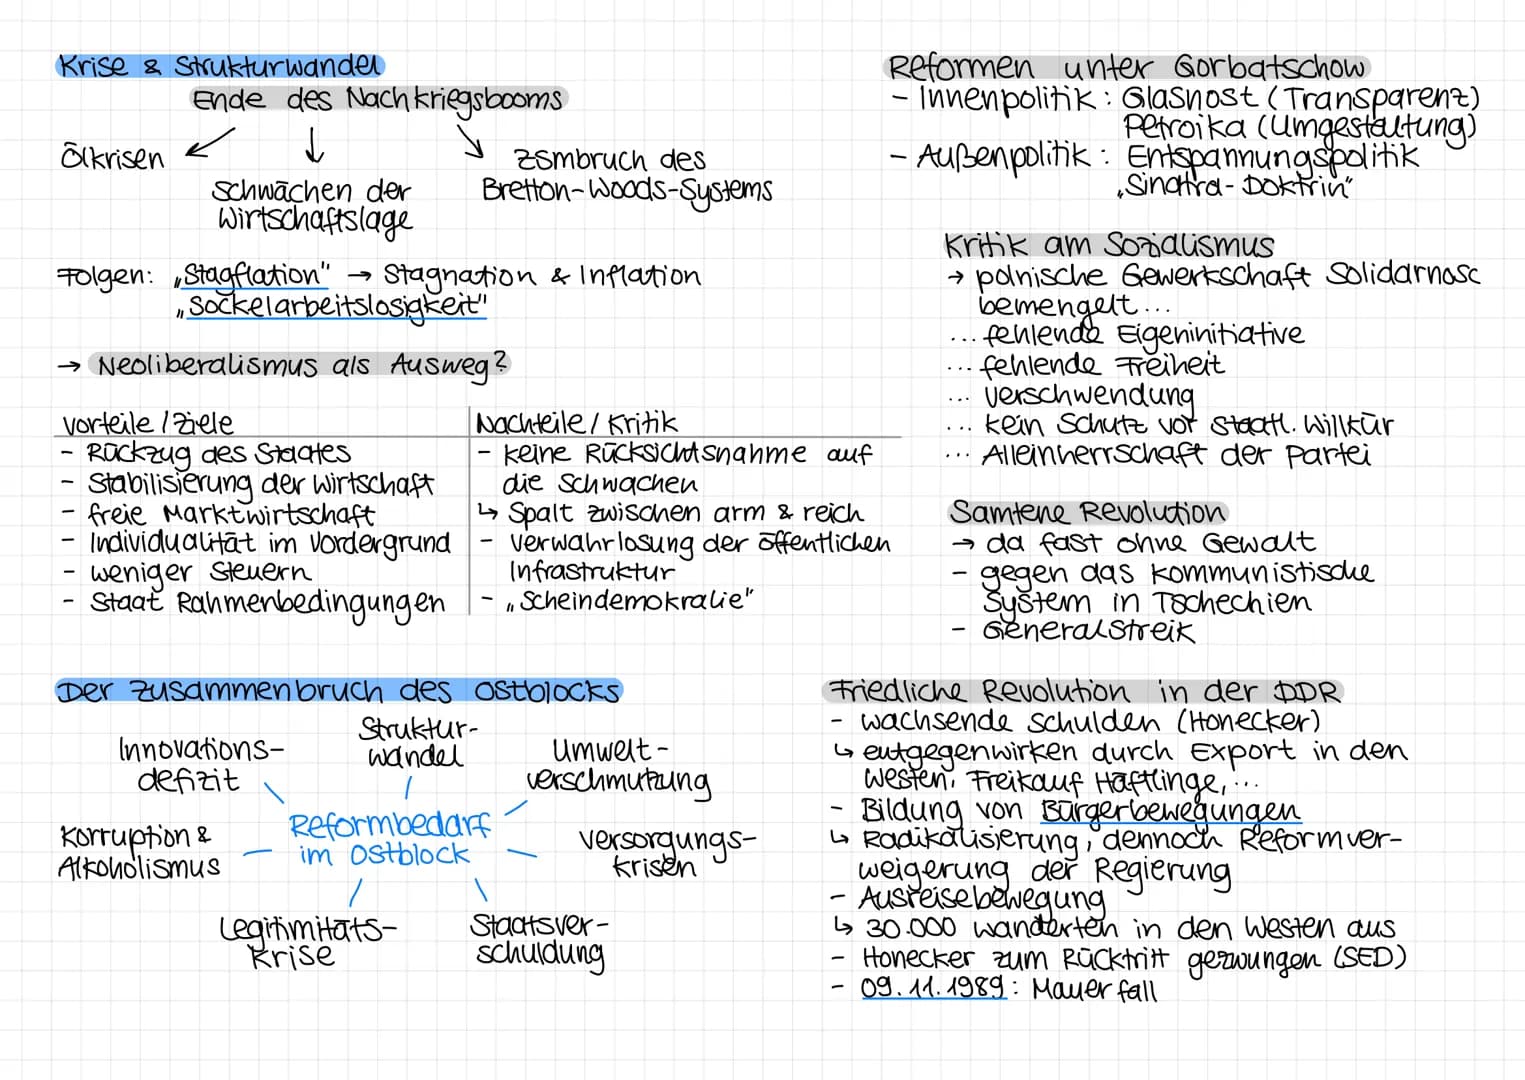 Krise & Strukturwandel
Ende des Nachkriegsbooms
Ölkrisen
Schwächen der
Wirtschaftslage
zsmbruch des
Bretton-Woods-Systems
Folgen: „Stagflation" → Stagnation & Inflation
„Sockelarbeitslosigkeit"
→ Neoliberalismus als Ausweg?
Vorteile / Ziele
- Rückzug des Staates
- Stabilisierung der Wirtschaft
- freie Marktwirtschaft
- Individualität im Vordergrund
- weniger Steuern
- Staat Rahmenbedingungen
Nachteile / Kritik
- keine Rücksichtsnahme auf
die Schwachen
↳ Spalt zwischen arm & reich
- Verwahrlosung der öffentlichen
Infrastruktur
- „Scheindemokratie"
Der Zusammenbruch des Ostblocks
Innovations-
defizit
Struktur-
wandel
Umwelt-
verschmutzung
Korruption &
Alkoholismus
Reformbedarf
im Ostblock
Versorgungs-
krisen
Legitimitäts-
krise
Staatsver-
schuldung
Reformen unter Gorbatschow
- Innenpolitik: Glasnost (Transparenz)
Petroika (Umgestaltung)
- Außenpolitik: Entspannungspolitik
„Sinatra-Doktrin"
Kritik am Sozialismus
→ polnische Gewerkschaft Solidarnosc
bemengelt...
... fehlende Eigeninitiative
... fehlende Freiheit
... Verschwendung
... kein Schutz vor staatl. Willkür
... Alleinherrschaft der Partei
Samtene Revolution
→ da fast ohne Gewalt
- gegen das kommunistische
System in Tschechien
- Generalstreik
Friedliche Revolution in der DDR
- wachsende Schulden (Honecker)
↳ entgegenwirken durch Export in den
Westen, Freikauf Häftlinge,...
- Bildung von Bürgerbewegungen
↳ Radikalisierung, dennoch Reformver-
weigerung der Regierung
- Ausreisebewegung
↳ 30.000 wanderten in den Westen aus
- Honecker zum Rücktritt gezwungen (SED)
- 09.11.1989: Mauerfall